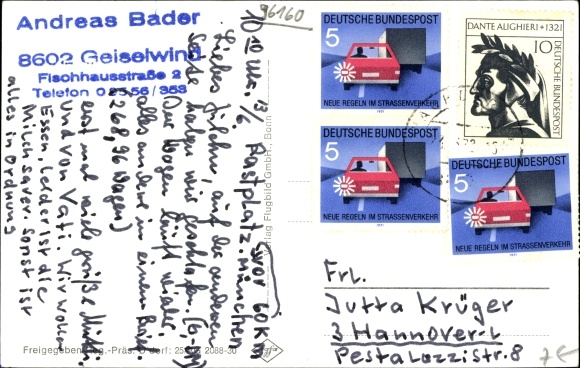 Andreas Bader
8602 Geiselwind
Fischhausstraße 2
Telefon 0 95 56 / 353
96160
10 10 Uhr, 13/6. Rastplatz München
(vor 60 km
Liebes Fräulein, auf der anderen
Seite haben wir geschlafen. (6-
Der Wagen läuft wie
alles andere in einem
(268,96 Wagen)
erst mal viele grüße Mutti,
und von Vati. Wir wollen
Essen, leider ist die
Milch sauer. Sonst ist
alles in Ordnung
Verlag Flugbild GmbH., Bonn
Freigegeben Reg.-Präs. D'dorf: 25 2088-30
DEUTSCHE BUNDESPOST
5
NEUE REGELN IM STRASSENVERKEHR
1971
DANTE ALIGHIERI + 1321
10
DEUTSCHE BUNDESPOST
DEUTSCHE BUNDESPOST
5
NEUE REGELN IM STRASSENVERKEHR
1971
DEUTSCHE BUNDESPOST
5
NEUE REGELN IM STRASSENVERKEHR
1971
Frl.
Jutta Krüger
3 Hannover-L
Pestalozzistr. 8
7€